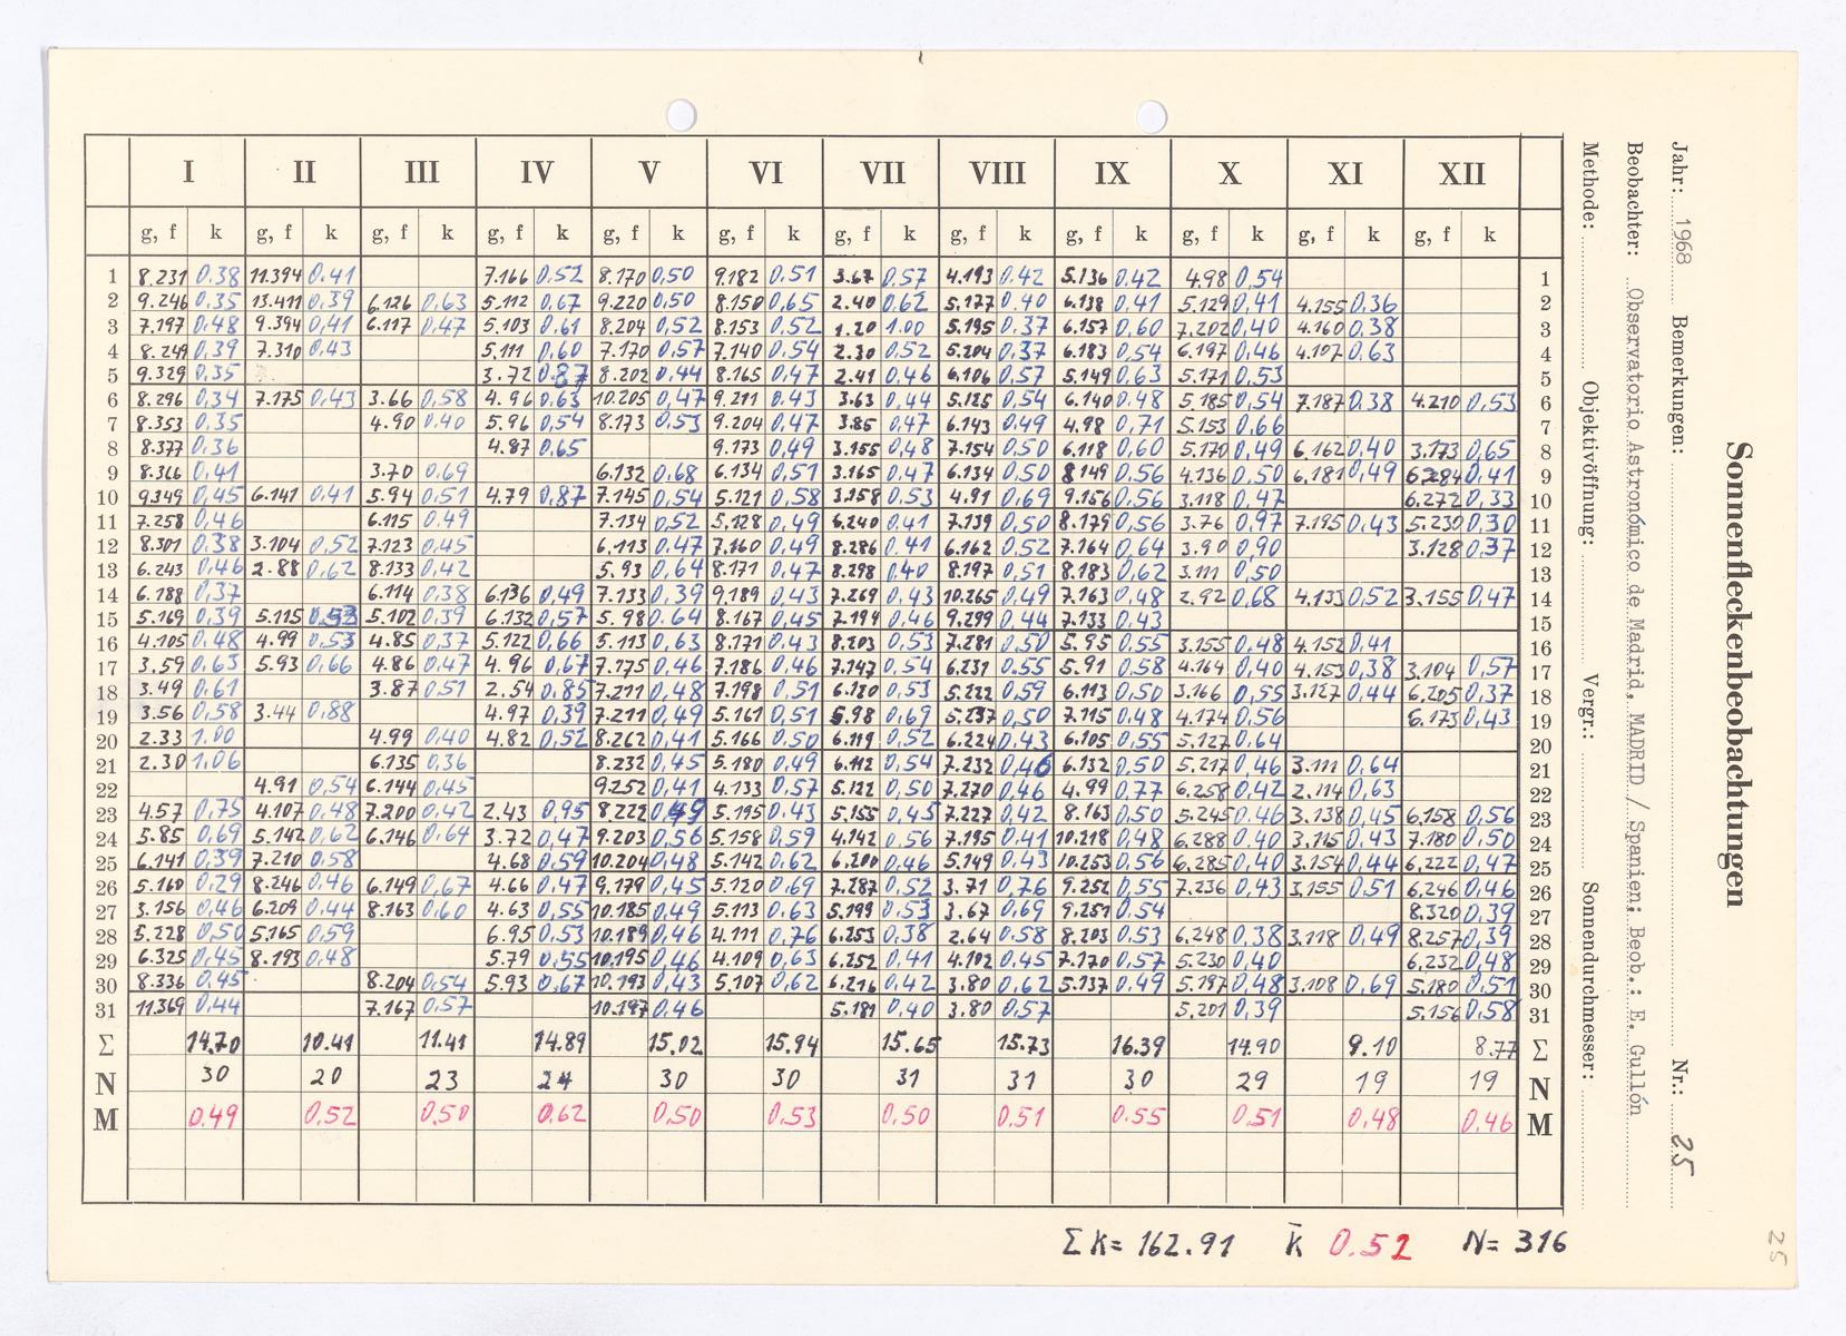 Sonnenfleckenbeobachtungen
Jahr: 1968 Bemerkungen: Nr.: 25
Beobachter: Observatorio Astronómico de Madrid, MADRID / Spanien; Beob.: E. Gullón
Methode: Objektivöffnung: Vergr.: Sonnendurchmesser:
I II III IV V VI VII VIII IX X XI XII
g, f k g, f k g, f k g, f k g, f k g, f k g, f k g, f k g, f k g, f k g, f k g, f k
1 8.231 0,38 11.394 0.41 7.166 0,52 8.170 0,50 9.182 0.51 3.67 0,57 4.193 0.42 5.136 0.42 4.98 0,54 1
2 9.246 0,35 13.411 0,39 6.126 0,63 5.112 0,67 9.220 0,50 8.150 0,65 2.40 0,62 5.177 0.40 6.138 0,41 5.129 0,41 4.155 0,36 2
3 7.197 0,48 9.394 0,41 6.117 0,47 5.103 0.61 8.204 0,52 8.153 0,52 1.20 1.00 5.195 0.37 6.157 0,60 7.202 0,40 4.160 0,38 3
4 8.249 0,39 7.310 0.43 5.111 0,60 7.170 0,57 7.140 0,54 2.30 0,52 5.204 0,37 6.183 0,54 6.197 0,46 4.107 0,63 4
5 9.329 0,35 3.72 0.87 8.202 0,44 8.165 0,47 2.41 0,46 6.106 0,57 5.149 0.63 5.171 0,53 5
6 8.296 0,34 7.175 0,43 3.66 0,58 4.96 0.63 10.205 0,47 9.211 0.43 3.63 0,44 5.125 0,54 6.140 0.48 5.185 0,54 7.187 0.38 4.210 0,53 6
7 8.353 0,35 4.90 0.40 5.96 0,54 8.173 0,53 9.204 0,47 3.85 0,47 6.143 0,49 4.98 0,71 5.153 0,66 7
8 8.377 0,36 4.87 0,65 9.173 0,49 3.155 0,48 7.154 0,50 6.118 0,60 5.170 0,49 6.162 0,40 3.173 0,65 8
9 8.366 0,41 3.70 0,69 6.132 0,68 6.134 0,51 3.165 0,47 6.134 0,50 8 149 0,56 4.136 0,50 6,181 0,49 6284 0,41 9
10 9349 0,45 6.141 0,41 5.94 0,51 4.79 0,87 7.145 0,54 5.121 0,58 3.158 0,53 4.91 0,69 9.156 0.56 3.118 0,47 6.272 0,33 10
11 7.258 0,46 6.115 0.49 7.134 0,52 5,128 0,49 6.240 0,41 7.139 0,50 8.179 0,56 3.76 0,97 7.195 0,43 5.230 0,30 11
12 8.301 0,38 3.104 0,52 7.123 0,45 6,113 0.47 7.160 0,49 8.286 0.41 6.162 0,52 7.164 0,64 3.90 0,90 3.128 0,37 12
13 6.243 0,46 2.88 0,62 8.133 0,42 5.93 0,64 8.171 0,47 8.298 0,40 8.197 0,51 8.183 0,62 3.111 0,50 13
14 6.188 0,37 6.114 0,38 6.136 0,49 7.133 0,39 9,189 0,43 7.269 0,43 10.265 0,49 7.163 0,48 2.92 0,68 4.133 0,52 3.155 0,47 14
15 5.169 0,39 5.115 0.53 5.102 0,39 6.132 0,57 5.98 0.64 8.167 0,45 7.194 0,46 9.299 0,44 7.133 0,43 15
16 4.105 0,48 4.99 0,53 4.85 0,37 5.122 0,66 5.113 0,63 8.171 0,43 8.203 0,53 7.281 0,50 5.95 0,55 3.155 0,48 4.152 0,41 16
17 3.59 0,63 5.93 0,66 4.86 0,47 4.96 0,67 7.175 0,46 7.186 0,46 7.147 0,54 6.231 0.55 5.91 0,58 4.164 0,40 4.153 0,38 3.104 0,57 17
18 3.49 0,61 3.87 0,51 2.54 0.85 7.211 0,48 7.198 0,51 6.120 0,53 5.222 0,59 6.113 0,50 3.166 0,55 3.127 0,44 6.205 0,37 18
19 3.56 0,58 3.44 0,88 4.97 0,39 7.211 0,49 5.161 0,51 5.98 0,69 5.237 0,50 7.115 0,48 4.174 0,56 6.173 0,43 19
20 2.33 1,00 4.99 0,40 4.82 0,52 8.262 0,41 5.166 0,50 6.119 0,52 6.224 0,43 6.105 0,55 5,127 0,64 20
21 2.30 1,06 6.135 0,36 8.232 0,45 5.180 0,49 6.112 0,54 7.232 0,46 6.132 0,50 5.217 0,46 3.111 0,64 21
22 4.91 0,54 6.144 0,45 9.252 0,41 4.133 0,57 5.122 0,50 7.270 0,46 4.99 0,77 6.258 0,42 2.114 0,63 22
23 4.57 0,75 4.107 0,48 7.200 0,42 2.43 0,95 8.222 0,49 5.195 0.43 5.155 0,45 7.227 0,42 8.163 0,50 5.245 0.46 3.138 0,45 6,158 0,56 23
24 5.85 0,69 5.142 0,62 6.146 0,64 3.72 0,47 9.203 0,56 5.158 0,59 4.142 0,56 7.195 0,41 10.218 0,48 6.288 0,40 3,145 0,43 7.180 0,50 24
25 6.141 0,39 7.210 0,58 4.68 0,59 10.204 0,48 5.142 0,62 6.200 0,46 5.149 0,43 10.253 0,56 6,285 0,40 3.154 0,44 6,222 0,47 25
26 5.160 0,29 8.246 0,46 6.149 0,67 4.66 0,47 9.179 0,45 5.120 0,69 7.287 0,52 3.71 0,76 9.252 0,55 7.236 0,43 3,155 0,51 6.246 0,46 26
27 3.156 0,46 6.209 0,44 8.163 0,60 4.63 0,55 10.185 0,49 5.113 0.63 5.199 0,53 3.67 0,69 9.251 0.54 8.320 0,39 27
28 5.228 0,50 5.165 0,59 6.95 0,53 10.189 0,46 4.111 0,76 6.253 0,38 2.64 0.58 8.203 0,53 6.248 0,38 3.118 0,49 8.257 0,39 28
29 6.325 0,45 8.193 0,48 5.79 0,55 10.195 0,46 4.109 0,63 6.252 0,41 4.102 0,45 7.170 0,57 5.230 0,40 6,232 0,48 29
30 8.336 0,45 8.204 0,54 5.93 0,67 10.193 0,43 5,107 0,62 6.216 0,42 3.80 0,62 5.137 0,49 5.197 0,48 3,108 0,69 5.180 0,51 30
31 11.369 0,44 7.167 0,57 10.197 0,46 5.181 0,40 3.80 0,57 5,201 0,39 5.156 0,58 31
Σ 14.70 10.41 11.41 14.89 15.02 15.94 15.65 15.73 16.39 14.90 9.10 8.77 Σ
N 30 20 23 24 30 30 31 31 30 29 19 19 N
M 0.49 0.52 0,50 0.62 0,50 0,53 0,50 0.51 0.55 0,51 0,48 0.46 M
Σ k= 162.91 k̄ 0.52 N= 316
25